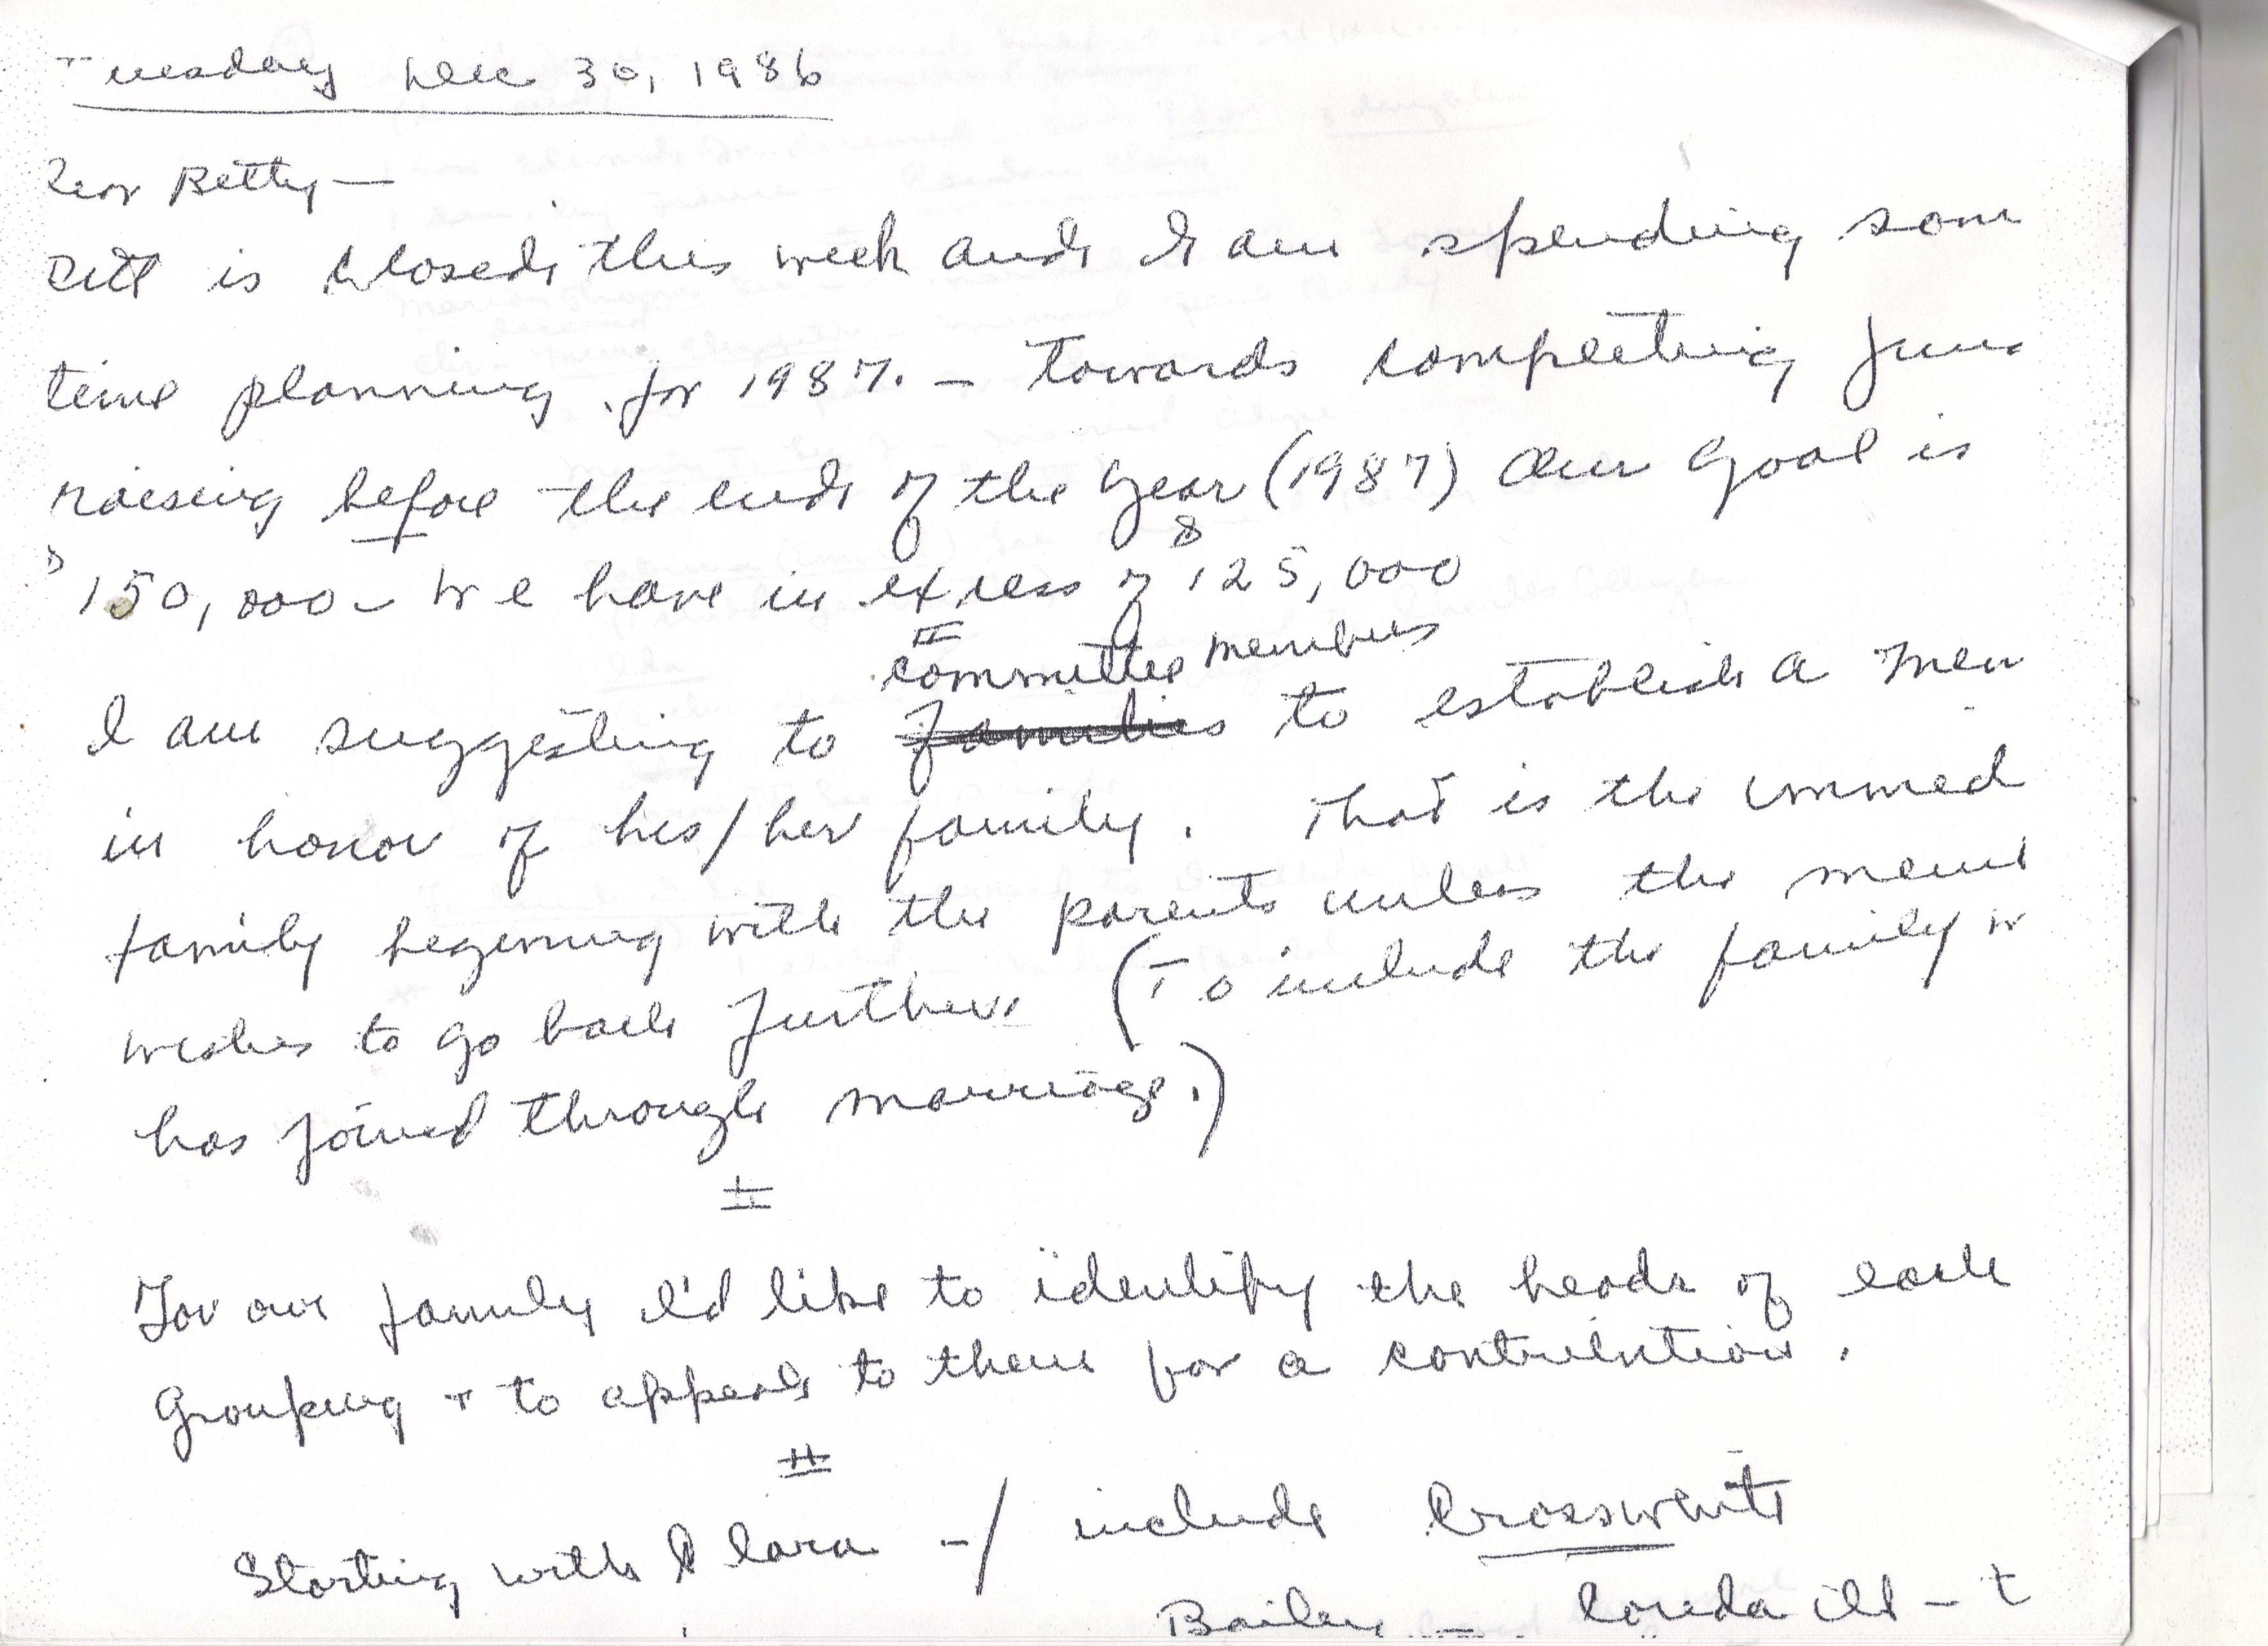 Tuesday Dec 30, 1986
Dear Betty—
is closed this week and I am spending som
time planning for 1987. — Towards completing fun
raising before the end of the year (1987) Our goal is
$150,000 – We have in excess of $125,000
committee members
I am suggesting to families to establish a mem
in honor of his/her family. That is the immed
family beginning with the parents unless the memb
wishes to go back further. (To include the family w
has joined through marriage.)
For our family I'd like to identify the heads of each
Grouping + to appeal to them for a contribution.
Starting with Clara –/ include Crosswhite
Bailey —